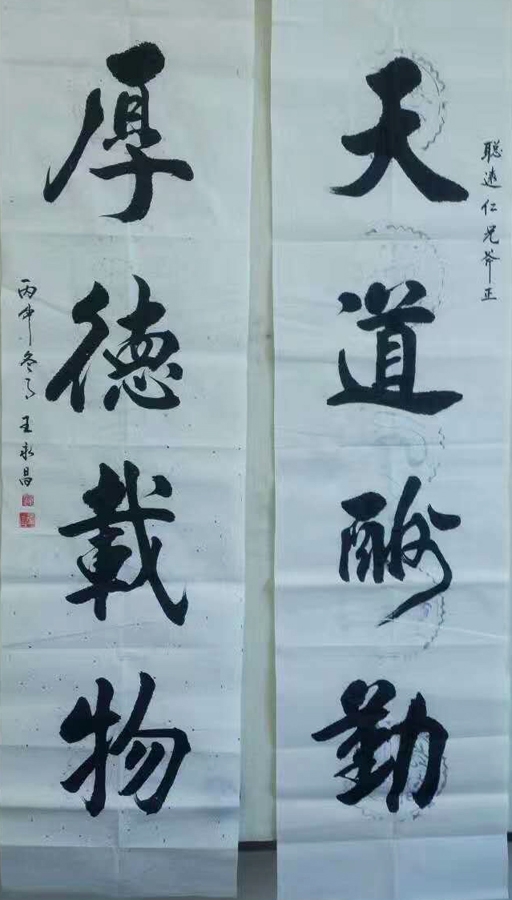 聪达仁兄斧正
天道酬勤
厚德载物
丙申冬月王永昌